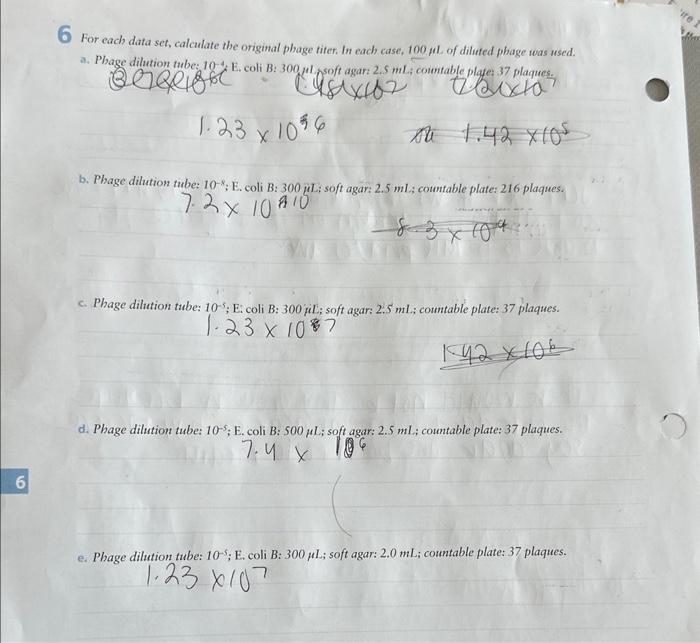 6 For each data set, calculate the original phage titer. In each case, 100 µL of diluted phage was used.
a. Phage dilution tube: 10⁻⁴; E. coli B: 300 µL; soft agar: 2.5 mL; countable plate: 37 plaques.
1.23 x 10⁶
1.42 x 10⁵
b. Phage dilution tube: 10⁻⁸; E. coli B: 300 µL; soft agar: 2.5 mL; countable plate: 216 plaques.
7.2 x 10¹⁰
c. Phage dilution tube: 10⁻⁵; E. coli B: 300 µL; soft agar: 2.5 mL; countable plate: 37 plaques.
1.23 x 10⁷
1.42 x 10⁶
d. Phage dilution tube: 10⁻⁵; E. coli B: 500 µL; soft agar: 2.5 mL; countable plate: 37 plaques.
7.4 x 10⁶
6
e. Phage dilution tube: 10⁻⁵; E. coli B: 300 µL; soft agar: 2.0 mL; countable plate: 37 plaques.
1.23 x 10⁷